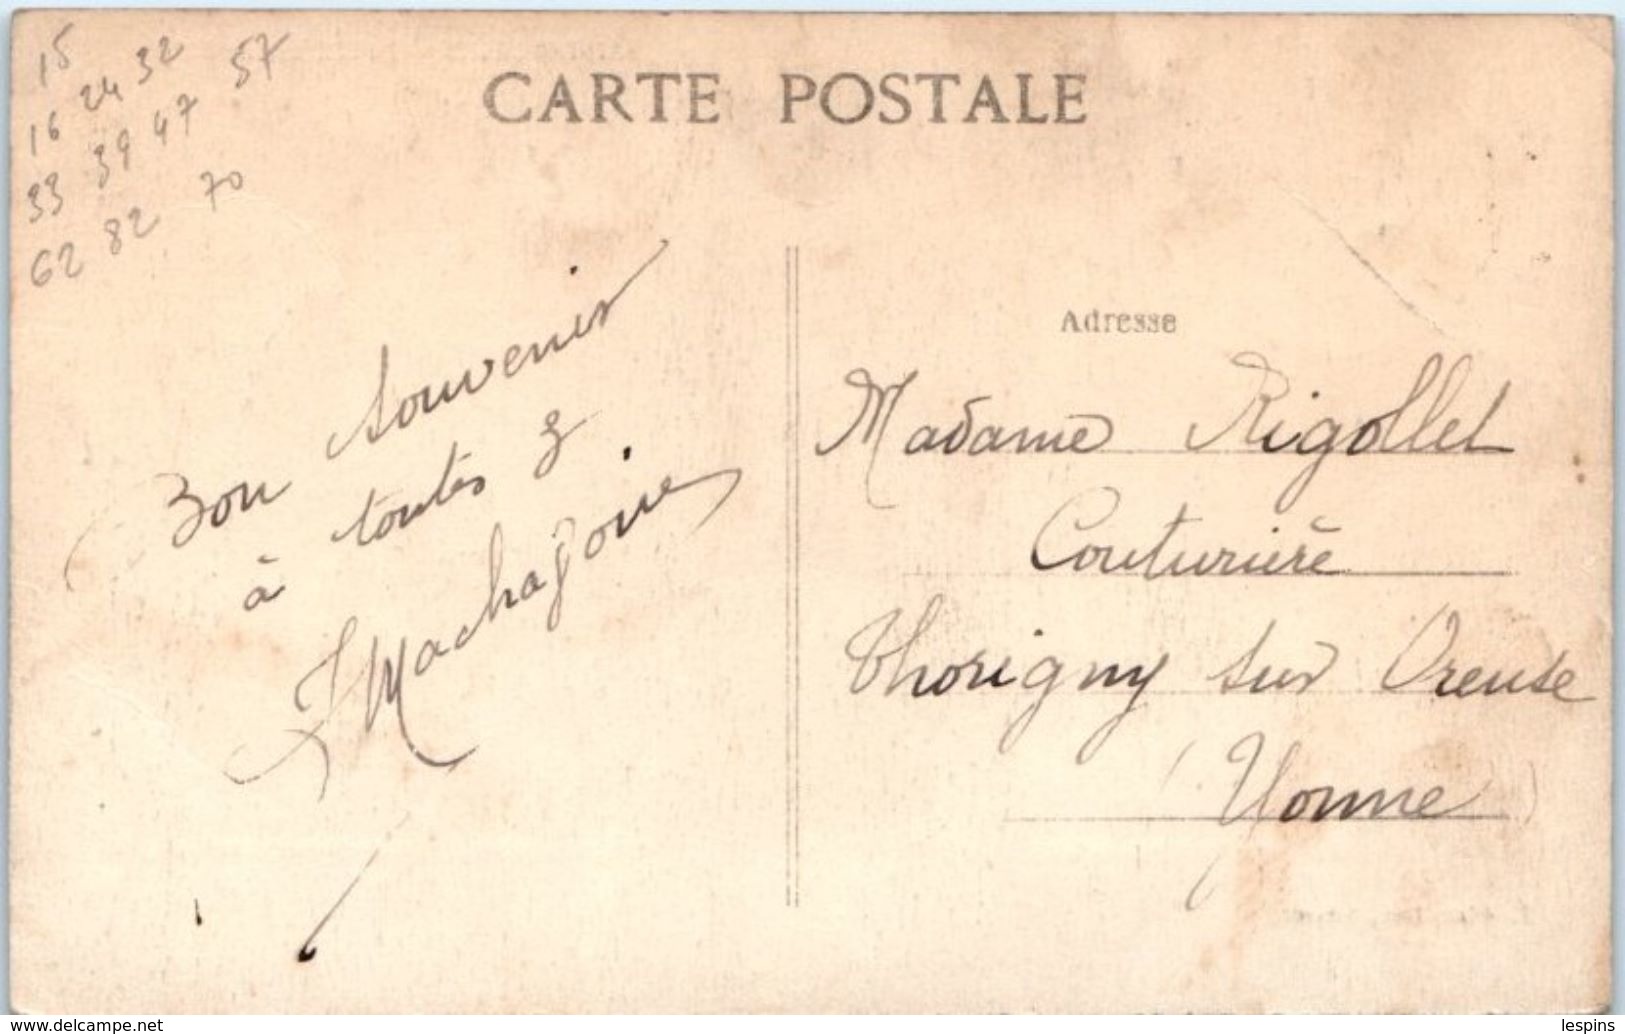 15
16 24 32
33 39 47 57
62 82 70
CARTE POSTALE
Bon souvenir
à toutes 3
Adresse
Madame Rigollet
Couturière
Thorigny sur Oreuse
(Yonne)
www.delcampe.net
lespins